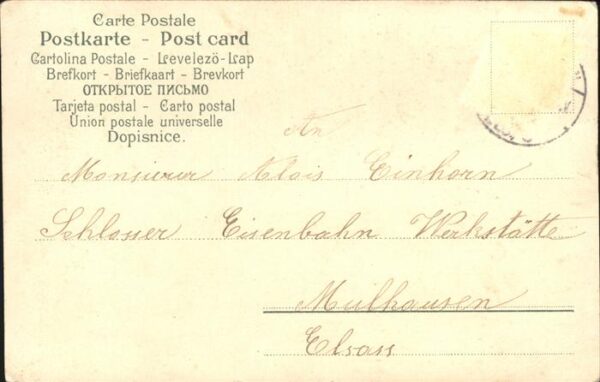 Carte Postale
Postkarte - Post card
Cartolina Postale - Levelező-Lap
Brefkort - Briefkaart - Brevkort
ОТКРЫТОЕ ПИСЬМО
Tarjeta postal - Carto postal
Union postale universelle
Dopisnice.
An
Monsieur Alois Einhorn
Schlosser Eisenbahn Werkstätte
Mülhausen
Elsass